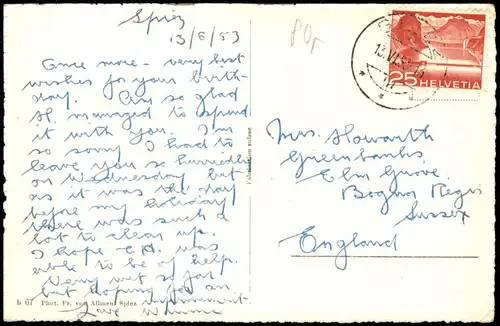 Spiez
13/6/53
Once more - very best
wishes for your birth-
day. Am so glad
A. managed to spend
it with you. I'm
so sorry I had to
leave you so hurriedly
on Wednesday but
as it was the day
before my holiday
there was such a
lot to clear up.
I hope E.A. was
able to be of help.
Very wet so far
but hoping for an
improvement.
Love Winnie
80p
13.VI.53
25 HELVETIA
Mrs. Howarth
Greenbanks,
Elm Grove,
Bognor Regis
Sussex
England
b 67 Phot. Fr. von Allmen, Spiez